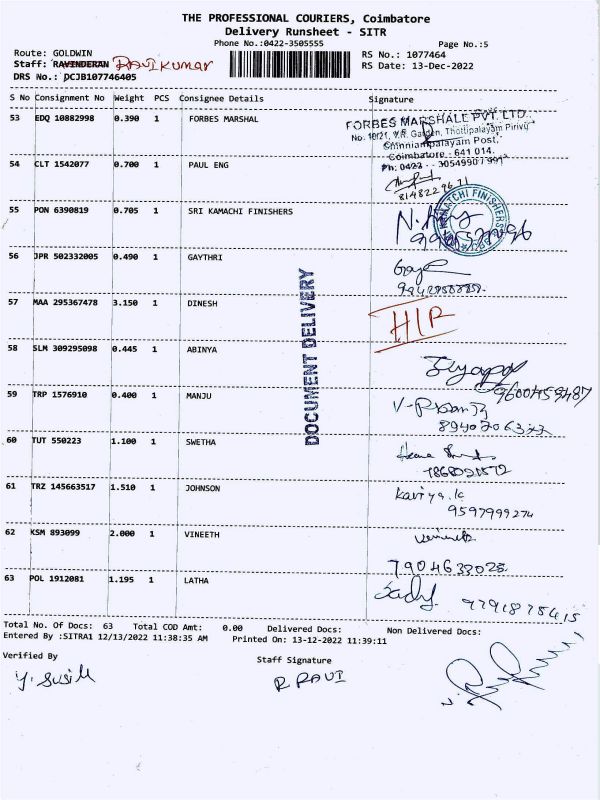 THE PROFESSIONAL COURIERS, Coimbatore
Delivery Runsheet - SITR
Phone No.:0422-3505555 Page No.:5
Route: GOLDWIN RS No.: 1077464
Staff: RAVINDERAN RAVIKUMAR RS Date: 13-Dec-2022
DRS No.: DCJB107746405
S No Consignment No Weight PCS Consignee Details Signature
53 EDQ 10882998 0.390 1 FORBES MARSHAL
FORBES MARSHALL PVT. LTD.
No. 10/21, V.R. Garden, Thottipalayam Pirivu
Chinniampalayam Post,
Coimbatore - 641 014.
Ph: 0422 - 30549907
54 CLT 1542077 0.700 1 PAUL ENG
8148229671
55 PON 6390819 0.705 1 SRI KAMACHI FINISHERS
KAMATCHI FINISHERS
56 JPR 502332005 0.490 1 GAYTHRI
57 MAA 295367478 3.150 1 DINESH
DOCUMENT DELIVERY
58 SLM 309295098 0.445 1 ABINYA
9600459487
59 TRP 1576910 0.400 1 MANJU
60 TUT 550223 1.100 1 SWETHA
61 TRZ 145663517 1.510 1 JOHNSON
Kaviya.k
9597999274
62 KSM 893099 2.000 1 VINEETH
7904633028
63 POL 1912081 1.195 1 LATHA
9791875415
Total No. Of Docs: 63 Total COD Amt: 0.00 Delivered Docs: Non Delivered Docs:
Entered By :SITRA1 12/13/2022 11:38:35 AM Printed On: 13-12-2022 11:39:11
Verified By Staff Signature
R RAVI